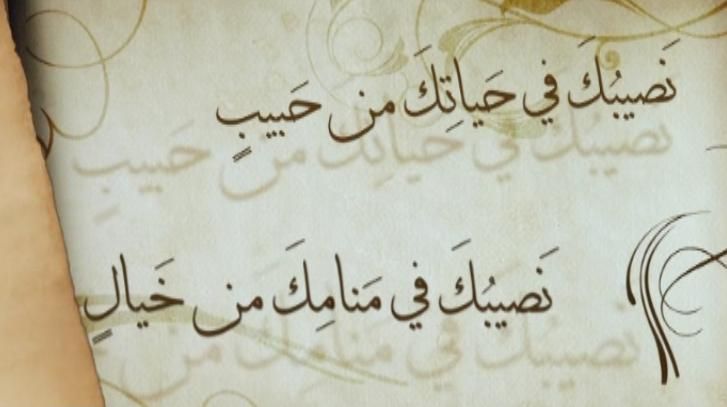 نَصيبُكَ في حَياتِكَ من حَبيبٍ
نَصيبُكَ في مَنامِكَ من خَيالٍ